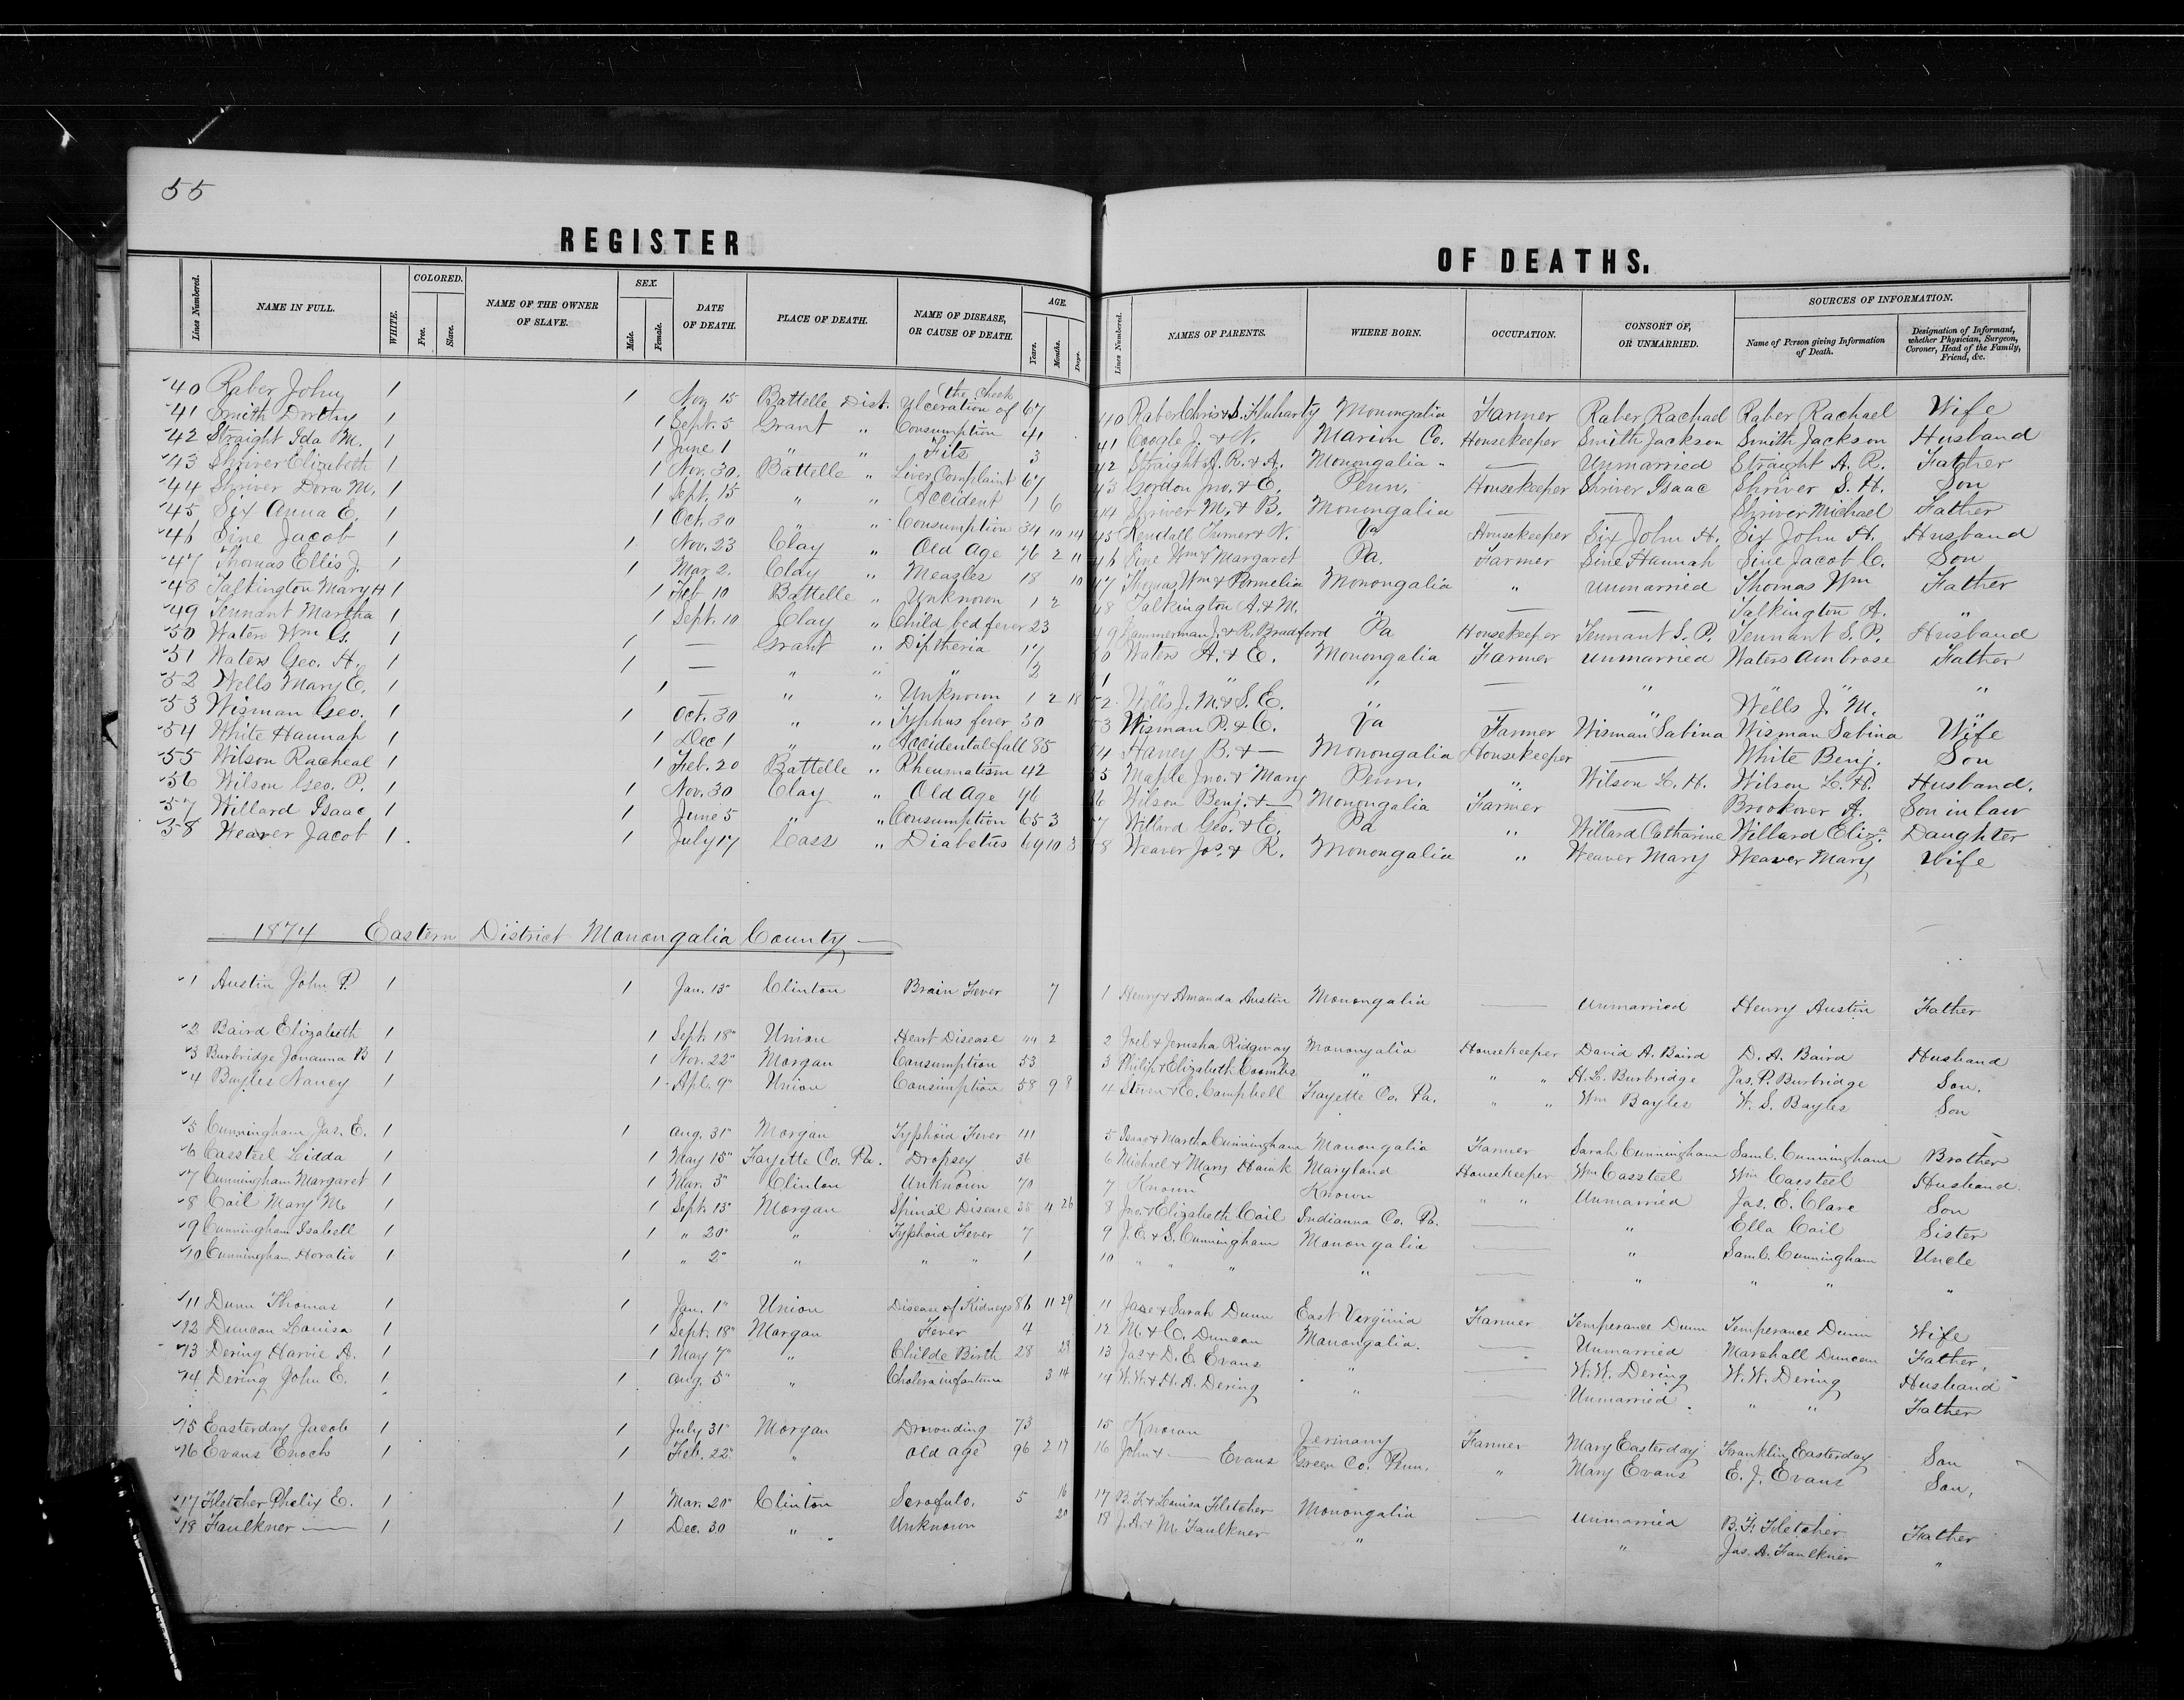 55
REGISTER
Lines Numbered. NAME IN FULL. WHITE. COLORED. Free. Slave. NAME OF THE OWNER OF SLAVE. SEX. Male. Female. DATE OF DEATH. PLACE OF DEATH. NAME OF DISEASE, OR CAUSE OF DEATH. AGE. Years. Months. Days.
40 Raber John 1 1 Nov 15 Battelle Dist. Ulceration of the Cheek 67
41 Smith Dorthy 1 1 Sept. 5 Grant " Consumption 41
42 Straight Ida M. 1 1 June 1 " " Fits 3
43 Shriver Elizabeth 1 1 Nov. 30. Battelle " Liver Complaint 67
44 Shriver Dora M. 1 1 Sept. 15 " " Accident 1 6
45 Six Anna E. 1 1 Oct. 30 " " Consumption 34 10 14
46 Sine Jacob 1 1 Nov. 23 Clay " Old Age 76 2 11
47 Thomas Ellis J. 1 1 Mar 2. Clay " Measles 18 10
48 Talkington Mary H 1 1 Feb 10 Battelle " Unknown 1 2
49 Tennant Martha 1 1 Sept. 10 Clay " Child bed fever 23
50 Waters Wm G. 1 1 — Grant " Diptheria 17
51 Waters Geo. H. 1 1 — " " "
52 Wells Mary E. 1 1 — " " Unknown 1 2 18
53 Wisman Geo. 1 1 Oct. 30 " " Typhus fever 30
54 White Hannah 1 1 Dec 1 " " Accidental fall 85
55 Wilson Racheal 1 1 Feb. 20 Battelle " Rheumatism 42
56 Wilson Geo. P. 1 1 Nov. 30 Clay " Old Age 96
57 Willard Isaac 1 1 June 5 " " Consumption 65 3
58 Weaver Jacob 1 1 July 17 Cass " Diabetus 69 10 3
1874 Eastern District Monongalia County —
1 Austin John P. 1 1 Jan. 13" Clinton Brain Fever 7
2 Baird Elizabeth 1 1 Sept. 18" Union Heart Disease 44 2
3 Burbridge Johanna B 1 1 Nov. 22" Morgan Consumption 53
4 Bayles Nancy 1 1 Apl. 9" Union Consumption 58 9 8
5 Cunningham Jas. E. 1 1 Aug. 31" Morgan Typhoid Fever 41
6 Cassteel Lidda 1 1 May 15" Fayette Co. Pa. Dropsey 36
7 Cunningham Margaret 1 1 Mar. 3" Clinton Unknown 70
8 Cail Mary M. 1 1 Sept. 13" Morgan Spinal Disease 35 11 26
9 Cunningham Isabell 1 1 " 20" " Typhoid Fever 7
10 Cunningham Horatio 1 1 " 2" " " " 1
11 Dunn Thomas 1 1 Jan. 1" Union Disease of Kidneys 86 11 29
12 Duncan Louisa 1 1 Sept. 18" Morgan Fever 4
13 Dering Harvie A. 1 1 May 7" " Childe Birth 28 23
14 Dering John E. 1 1 Aug. 5" " Cholera infantum 3 14
15 Easterday Jacob 1 1 July 31" Morgan Drownding 73
16 Evans Enoch 1 1 Feb. 22" " Old age 96 2 17
17 Fletcher Phelix E. 1 1 Mar. 20" Clinton Scrofulo. 5 16
18 Faulkner — 1 1 Dec. 30 " Unknown 20
OF DEATHS.
Lines Numbered. NAMES OF PARENTS. WHERE BORN. OCCUPATION. CONSORT OF, OR UNMARRIED. SOURCES OF INFORMATION. Name of Person giving Information of Death. Designation of Informant, whether Physician, Surgeon, Coroner, Head of the Family, Friend, &c.
40 Raber Chris & S. Fluharty Monongalia Farmer Raber Rachael Raber Rachael Wife
41 Coogle J. & N. Marion Co. Housekeeper Smith Jackson Smith Jackson Husband
42 Straight A. R. & A. Monongalia " — Unmarried Straight A. R. Father
43 Gordon Jno. & E. Penn. Housekeeper Shriver Isaac Shriver S. H. Son
44 Shriver M. & B. Monongalia — — Shriver Michael Father
45 Kendall Turner & N. Va Housekeeper Six John H. Six John H. Husband
46 Sine Wm & Margaret Pa. Farmer Sine Hannah Sine Jacob C. Son
47 Thomas Wm & Permelia Monongalia " Unmarried Thomas Wm Father
48 Talkington A. & M. " — — Talkington A. "
49 Zammerman J. & R. Bradford Pa Housekeeper Tennant S. P. Tennant S. P. Husband
50 Waters A. & E. Monongalia Farmer Unmarried Waters Ambrose Father
51 " " " — " " " "
52 Wells J. M. & S. E. " — " Wells J. M. "
53 Wisman P. & C. Va Farmer Wisman Sabina Wisman Sabina Wife
54 Haney B. & — Monongalia Housekeeper — White Benj. Son
55 Maple Jno. & Mary Penn. " Wilson L. H. Wilson L. H. Husband.
56 Wilson Benj. & — Monongalia Farmer — Brookover A. Son in law
57 Willard Geo. & E. Pa " Willard Catharine Willard Eliza. Daughter
58 Weaver Jos. & R. Monongalia " Weaver Mary Weaver Mary Wife
1 Henry & Amanda Austin Monongalia — Unmarried Henry Austin Father
2 Joel & Jerusha Ridgway Monongalia Housekeeper David A. Baird D. A. Baird Husband
3 Philip & Elizabeth Coombs " " " H. L. Burbridge Jas. P. Burbridge Son.
4 Steven & C. Campbell Fayette Co. Pa. " " Wm Bayles W. S. Bayles Son
5 Isaac & Martha Cunningham Monongalia Farmer Sarah Cunningham Saml. Cunningham Brother
6 Michael & Mary Hawk Maryland Housekeeper Wm Cassteel Wm Cassteel Husband
7 Known Known " " Unmarried Jas. E. Clare Son
8 Jno. & Elizabeth Cail Indianna Co. Pa. — " Ella Cail Sister
9 J. E. & S. Cunningham Monongalia — " Saml. Cunningham Uncle
10 " " " " — " " " "
11 Jase & Sarah Dunn East Virginia Farmer Temperance Dunn Temperance Dunn Wife
12 M. & C. Duncan Monongalia. — Unmarried Marshall Duncan Father,
13 Jas & D. E. Evans " — W. W. Dering W. W. Dering Husband
14 W. W. & H. A. Dering " — Unmarried. " " Father
15 Known Jermany Farmer Mary Easterday Franklin Easterday Son
16 John & — Evans Green Co. Penn. " Mary Evans E. J. Evans Son,
17 B. F. & Louisa Fletcher Monongalia — Unmarried B. F. Fletcher Father
18 J. A. & M. Faulkner " " Jas. A. Faulkner "